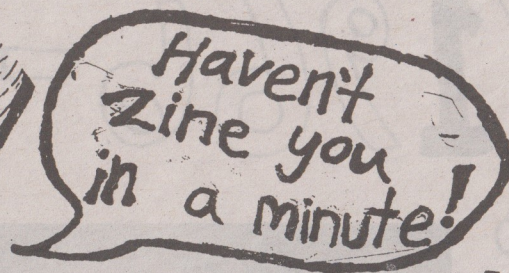 Haven't
zine you
in a minute!